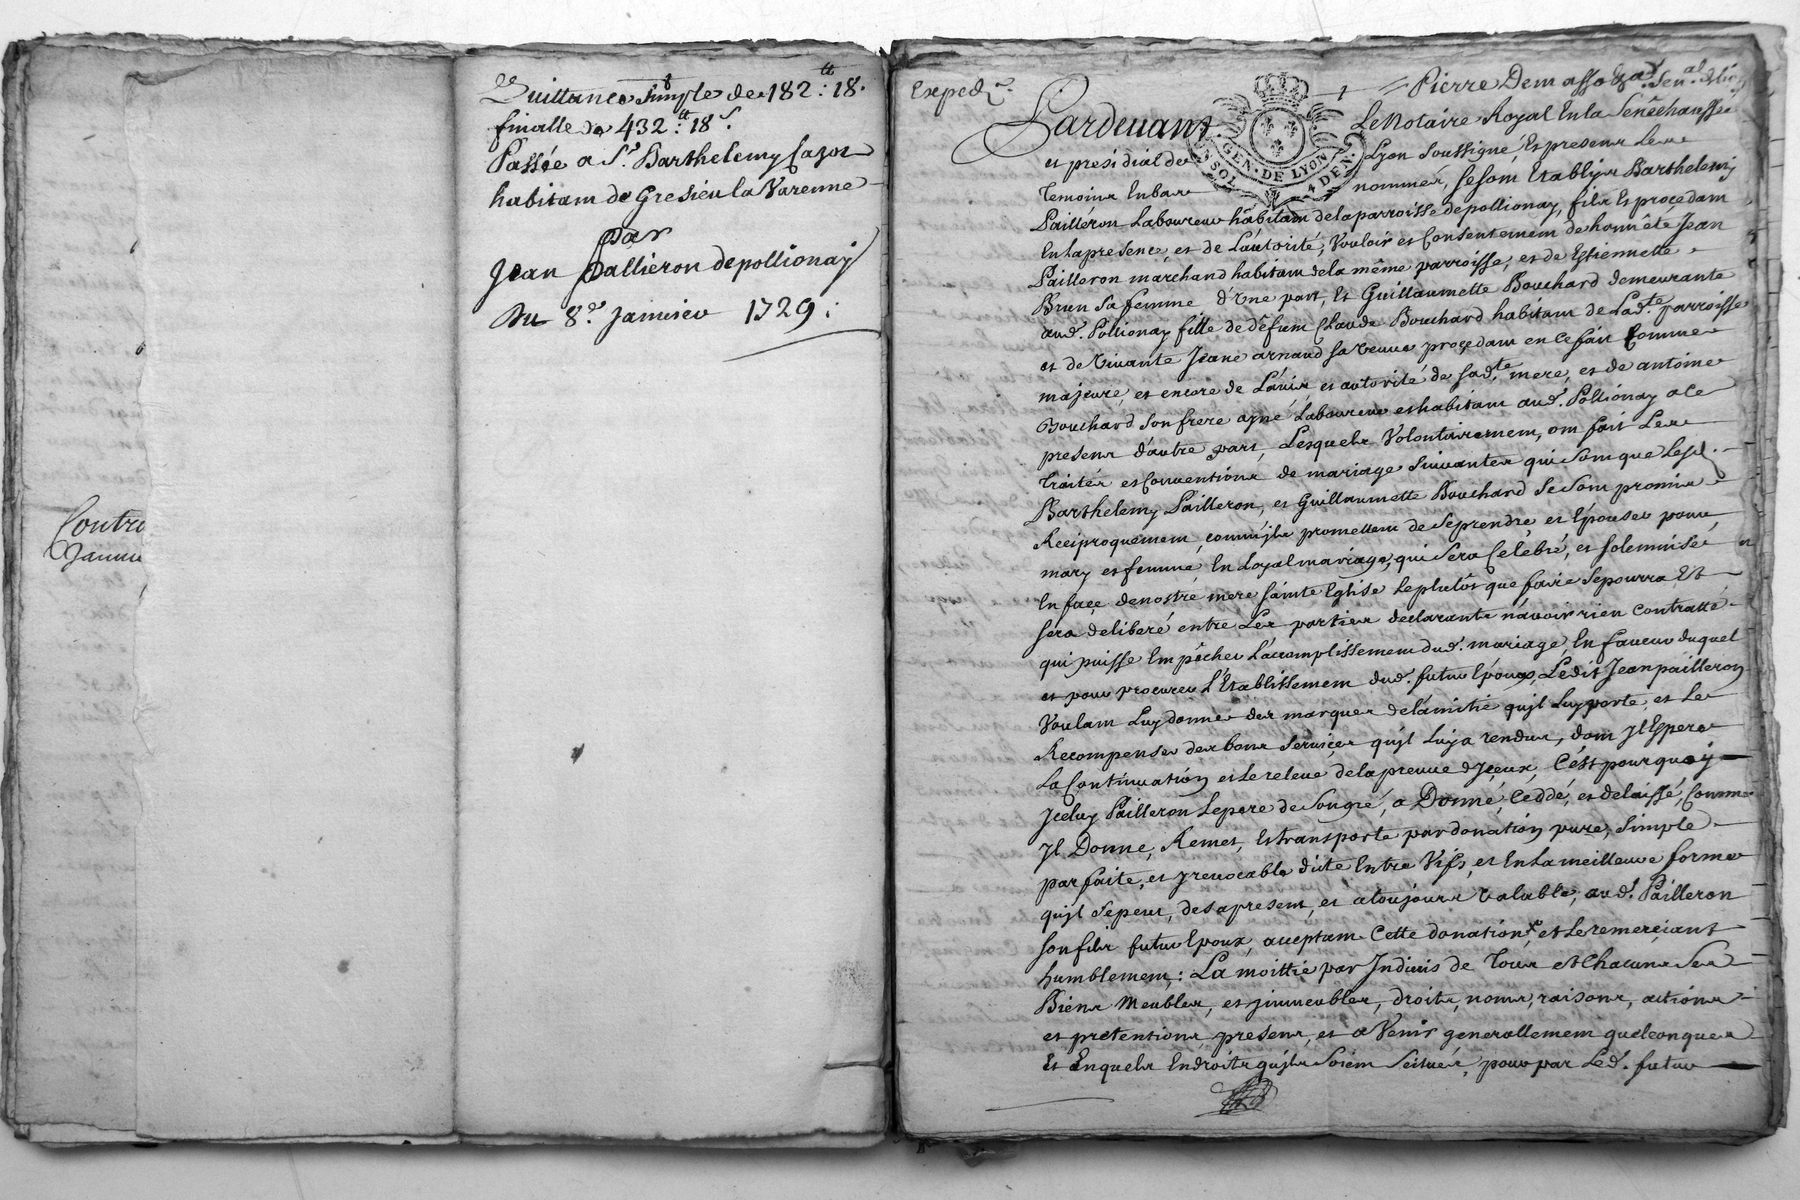 Quittance simple de 182 tt : 18 s.
finalle de 432 tt : 18 s.
Passée a Sr. Barthelemy
habitant de Gresieu la Varenne
par
Jean Pallieron de pollionay
Du 8e. Janvier 1729 :
Contro
Janvi
Exped
Pierre Demasso
Pardevant Le Notaire Royal En la Senêchaussée
et presidial de Lyon soussigné, Et presens Les
Temoins En bas nommés, se sont Etablys Barthelemy
Pailléron Laboureur hâbitant de la parroisse de pollionay, fils Et procedant
En la presence, et de L'autorité, Vouloir et Consentement de honnête Jean
Pailleron marchand habitant de la même parroisse, et de Estiennette
Brun sa femme d'Une part, Et Guillaumette Bouchard demeurante
aud. Pollionay fille de défunt Claude Bouchard habitant de Lad.te parroisse
et de Vivante Jeane arnaud sa Veuve procedant en ce fait Comme
majeure, et encore de L'avis et autorité de sad.te mere, et de antoine
Bouchard son frere ayné Laboureur et habitant aud. Pollionay a ce
present d'autre part, Lesquels Volontairement, ont fait Les
traités et Conventions de mariage suivantes qui sont que Lesd.
Barthelemy Pailleron, et Guillaumette Bouchard se sont promis
Reciproquement, comm'jls promettent de se prendre et Epouser pour
mary et femme En Loyal mariage, qui sera Celébré, et solemnisé
En façe de nostre mere sainte Eglise Leplutôs que faire se pourra Et
sera deliberé entre Les parties declarants n'avoir rien contratté
qui puisse Empêcher L'accomplissement dud. mariage, En faveur duquel
et pour procurer L'Etablissement dud. futur Epoux, Ledit Jean pailleron
Voulant Luy donner des marques de L'amitié qu'jl Luy porte, et Le
Recompenser des bons serviçes qu'jl Luy a rendus, dont Jl Espere
La Continuation et Le releve de la preuve d'Jçeux, C'est pourquoy
Jceluy Pailleron Le pere de son gré, a Donné, Ceddé, et delaissé, Comme
Jl Donne, Remet, Et transporte par donation pure, simple
parfaite, et jrrevocable dite Entre Vifs, et En la meilleure forme
qu'jl se peut, des a present, et a toujours Valable, aud. Pailleron
son fils futur Epoux, acceptant Cette donation, et Le remerçiant
humblement : La moittié par Jndivis de Tous et Chacuns ses
Biens Meubles, et jmmeubles, droits, noms, raisons, actions
et pretentions, presens, et a Venir generallement quelconques
Et Enquels Endroits qu'jls soient scitués, pour par Led. futur